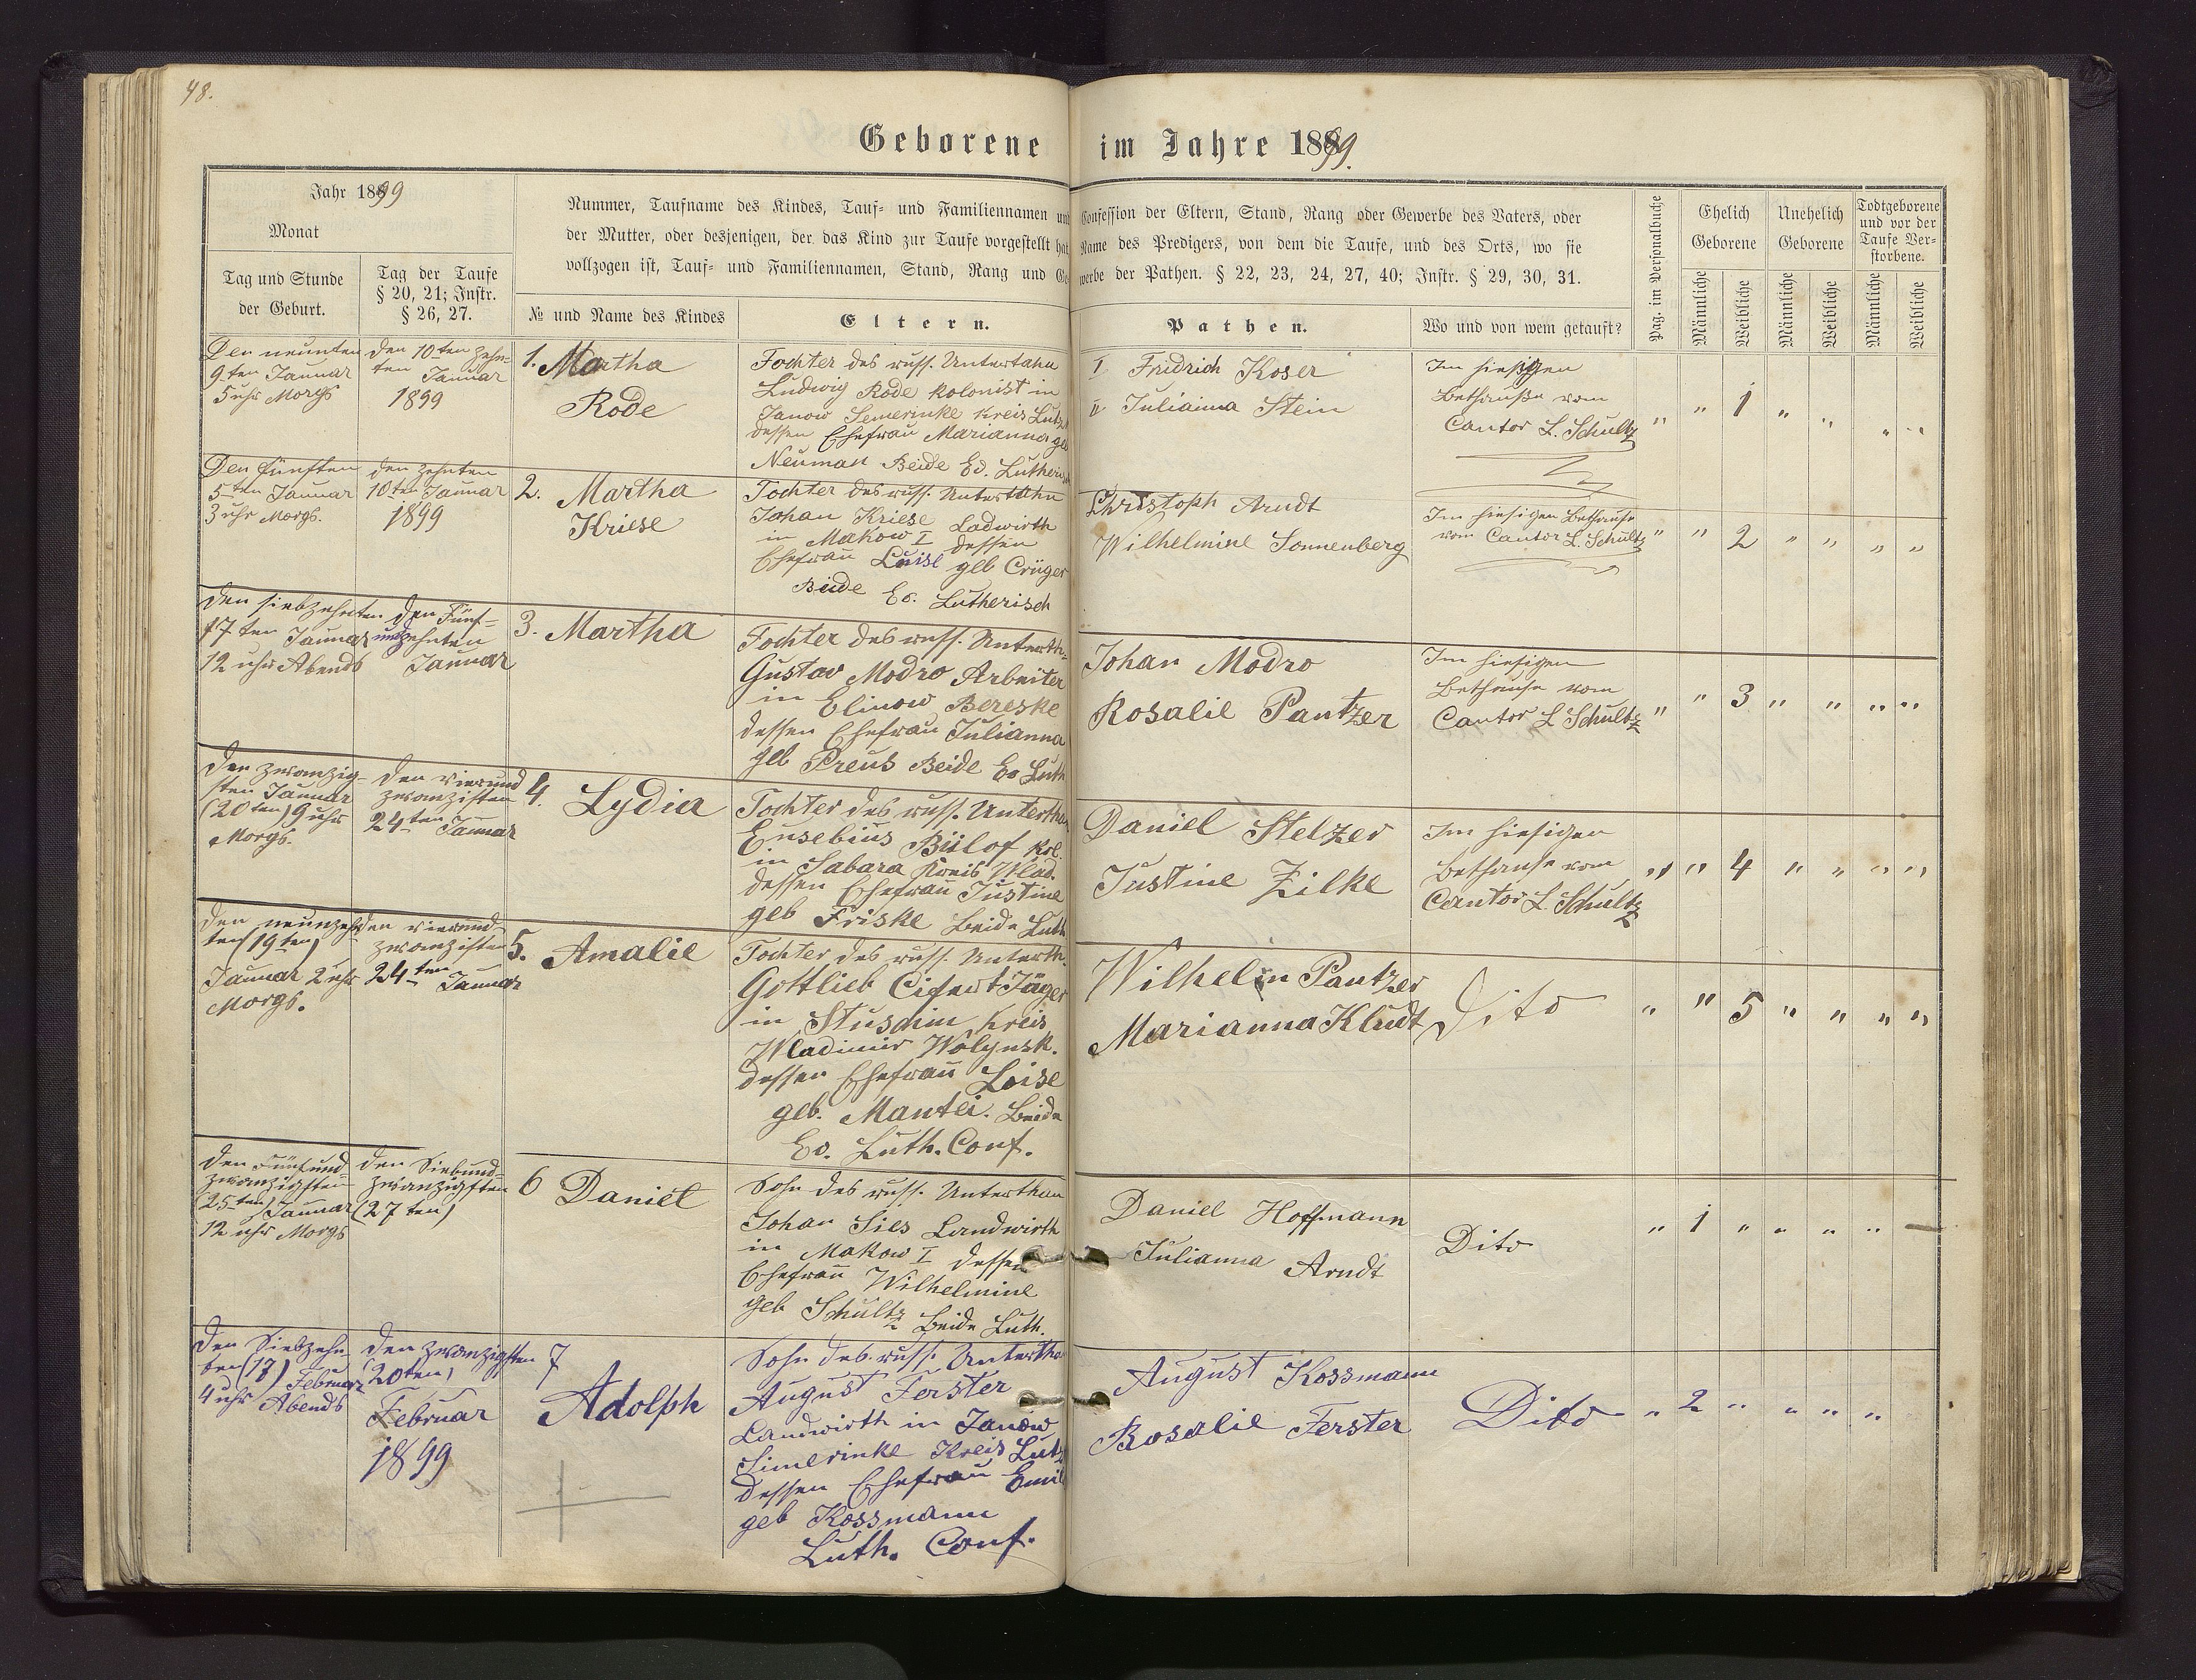 48.
Geborene im Jahre 1899.
Jahr 1899
Monat
Tag und Stunde
der Geburt.
Tag der Taufe
§ 20, 21; Instr.
§ 26, 27.
Nummer, Taufname des Kindes, Tauf- und Familiennamen und Confession der Eltern, Stand, Rang oder Gewerbe des Vaters, oder
der Mutter, oder desjenigen, der das Kind zur Taufe vorgestellt hat. Name des Predigers, von dem die Taufe, und des Orts, wo sie
vollzogen ist, Tauf- und Familiennamen, Stand, Rang und Gewerbe der Pathen. § 22, 23, 24, 27, 40; Instr. § 29, 30, 31.
№ und Name des Kindes
Eltern.
Pathen.
Wo und von wem getauft?
Pag. im Personalbuche
Ehelich
Geborene
Unehelich
Geborene
Todtgeborene
und vor der
Taufe Ver-
storbene.
Männliche
Weibliche
Männliche
Weibliche
Männliche
Weibliche
Den neunten
9-ten Januar
5 uhr Morgs
den 10-ten Zehn-
ten Januar
1899
1. Martha
Rode
Tochter des russ. Untertahn
Ludwig Rode kolonist in
Janow Semerinke Kreis Lutz
dessen Ehefrau Marianna geb
Neuman Beide Ev. Lutherisch
I Fridrich Koser
II Julianna Stein
Im hiesigen
Bethause vom
Cantor L. Schultz
" " 1 " " " "
Den fünften
5-ten Januar
3 uhr Morgs.
den zehnten
10-ten Januar
1899
2. Martha
Kriese
Tochter des russ. Untertahn
Johan Kriese Ladwirth
in Makow I dessen
Ehefrau Luise geb Crüger
Beide Ev. Lutherisch
Christoph Arndt
Wilhelmine Sonnenberg
Im hiesigen Bethause
vom Cantor L. Schultz
" " 2 " " " "
den siebzehnten
17 ten Januar
12 uhr Abends
den Fünf-
undzehnten
Januar
3. Martha
Tochter des russ. Unterth-
Gustav Modro Arbeiter
in Elinow Bereske
dessen Ehefrau Julianna
geb Preus Beide Ev Luth
Johan Modro
Rosalie Pantzer
Im hiesigen
Bethause vom
Cantor L. Schultz
" " 3 " " " "
den zwanzig-
sten Januar
(20 ten) 9 uhr
Morgs.
den vierund
zwanzisten
24-ten Januar
4. Lydia
Tochter des russ. Unterthan
Eusebius Bülof Kol.
in Sabara Kreis Wlad.
dessen Ehefrau Justine
geb Friske Beide Luth
Daniel Stelzer
Justine Zilke
Im hiesigen
Bethause vom
Cantor L. Schultz
" " 4 " " " "
den neunzehn
ten (19 ten)
Januar 2 uhr
Morgs.
den vierund-
zwanzisten
24-ten Januar
5. Amalie
Tochter des russ. Unterth.
Gottlieb Jäger
in Kreis
Wladimir Wolynsk.
dessen Ehefrau Loise
geb. Mantei. Beide
Ev. Luth. Conf.
Wilhelm Pantzer
Marianna Kludt
Dito
" " 5 " " " "
den Fünfund
zwanzigsten
(25-ten) Januar
12 uhr Morgs
den Siebund-
zwanzigsten
(27 ten)
6 Daniel
Sohn des russ. Unterthan
Johan Sies Landwirth
in Makow I dessen
Ehefrau Wilhelmine
geb Schultz Beide Luth.
Daniel Hoffmann
Julianna Arndt
Dito
" 1 " " " "
den Siebzehn
ten (17) Februar
4 uhr Abends
den zwanzigsten
(20 ten)
Februar
1899
7
Adolph
Sohn des russ. Untertha
August Ferster
Landwirth in Janow
Simerinke Kreis Lutz
dessen Ehefrau Emil
geb Kossmann
Luth. Conf.
August Kossmann
Rosalie Ferster
Dito
" 2 " " " "